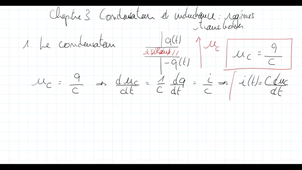 Chapitre 3 Condensateur et inductance : régimes
transitoires
1. Le condensateur
q(t)
-q(t)
u_c
u_c = q/C
u_c = q/C ⇒ du_c/dt = 1/C dq/dt = i/C ⇒ i(t) = C du_c/dt